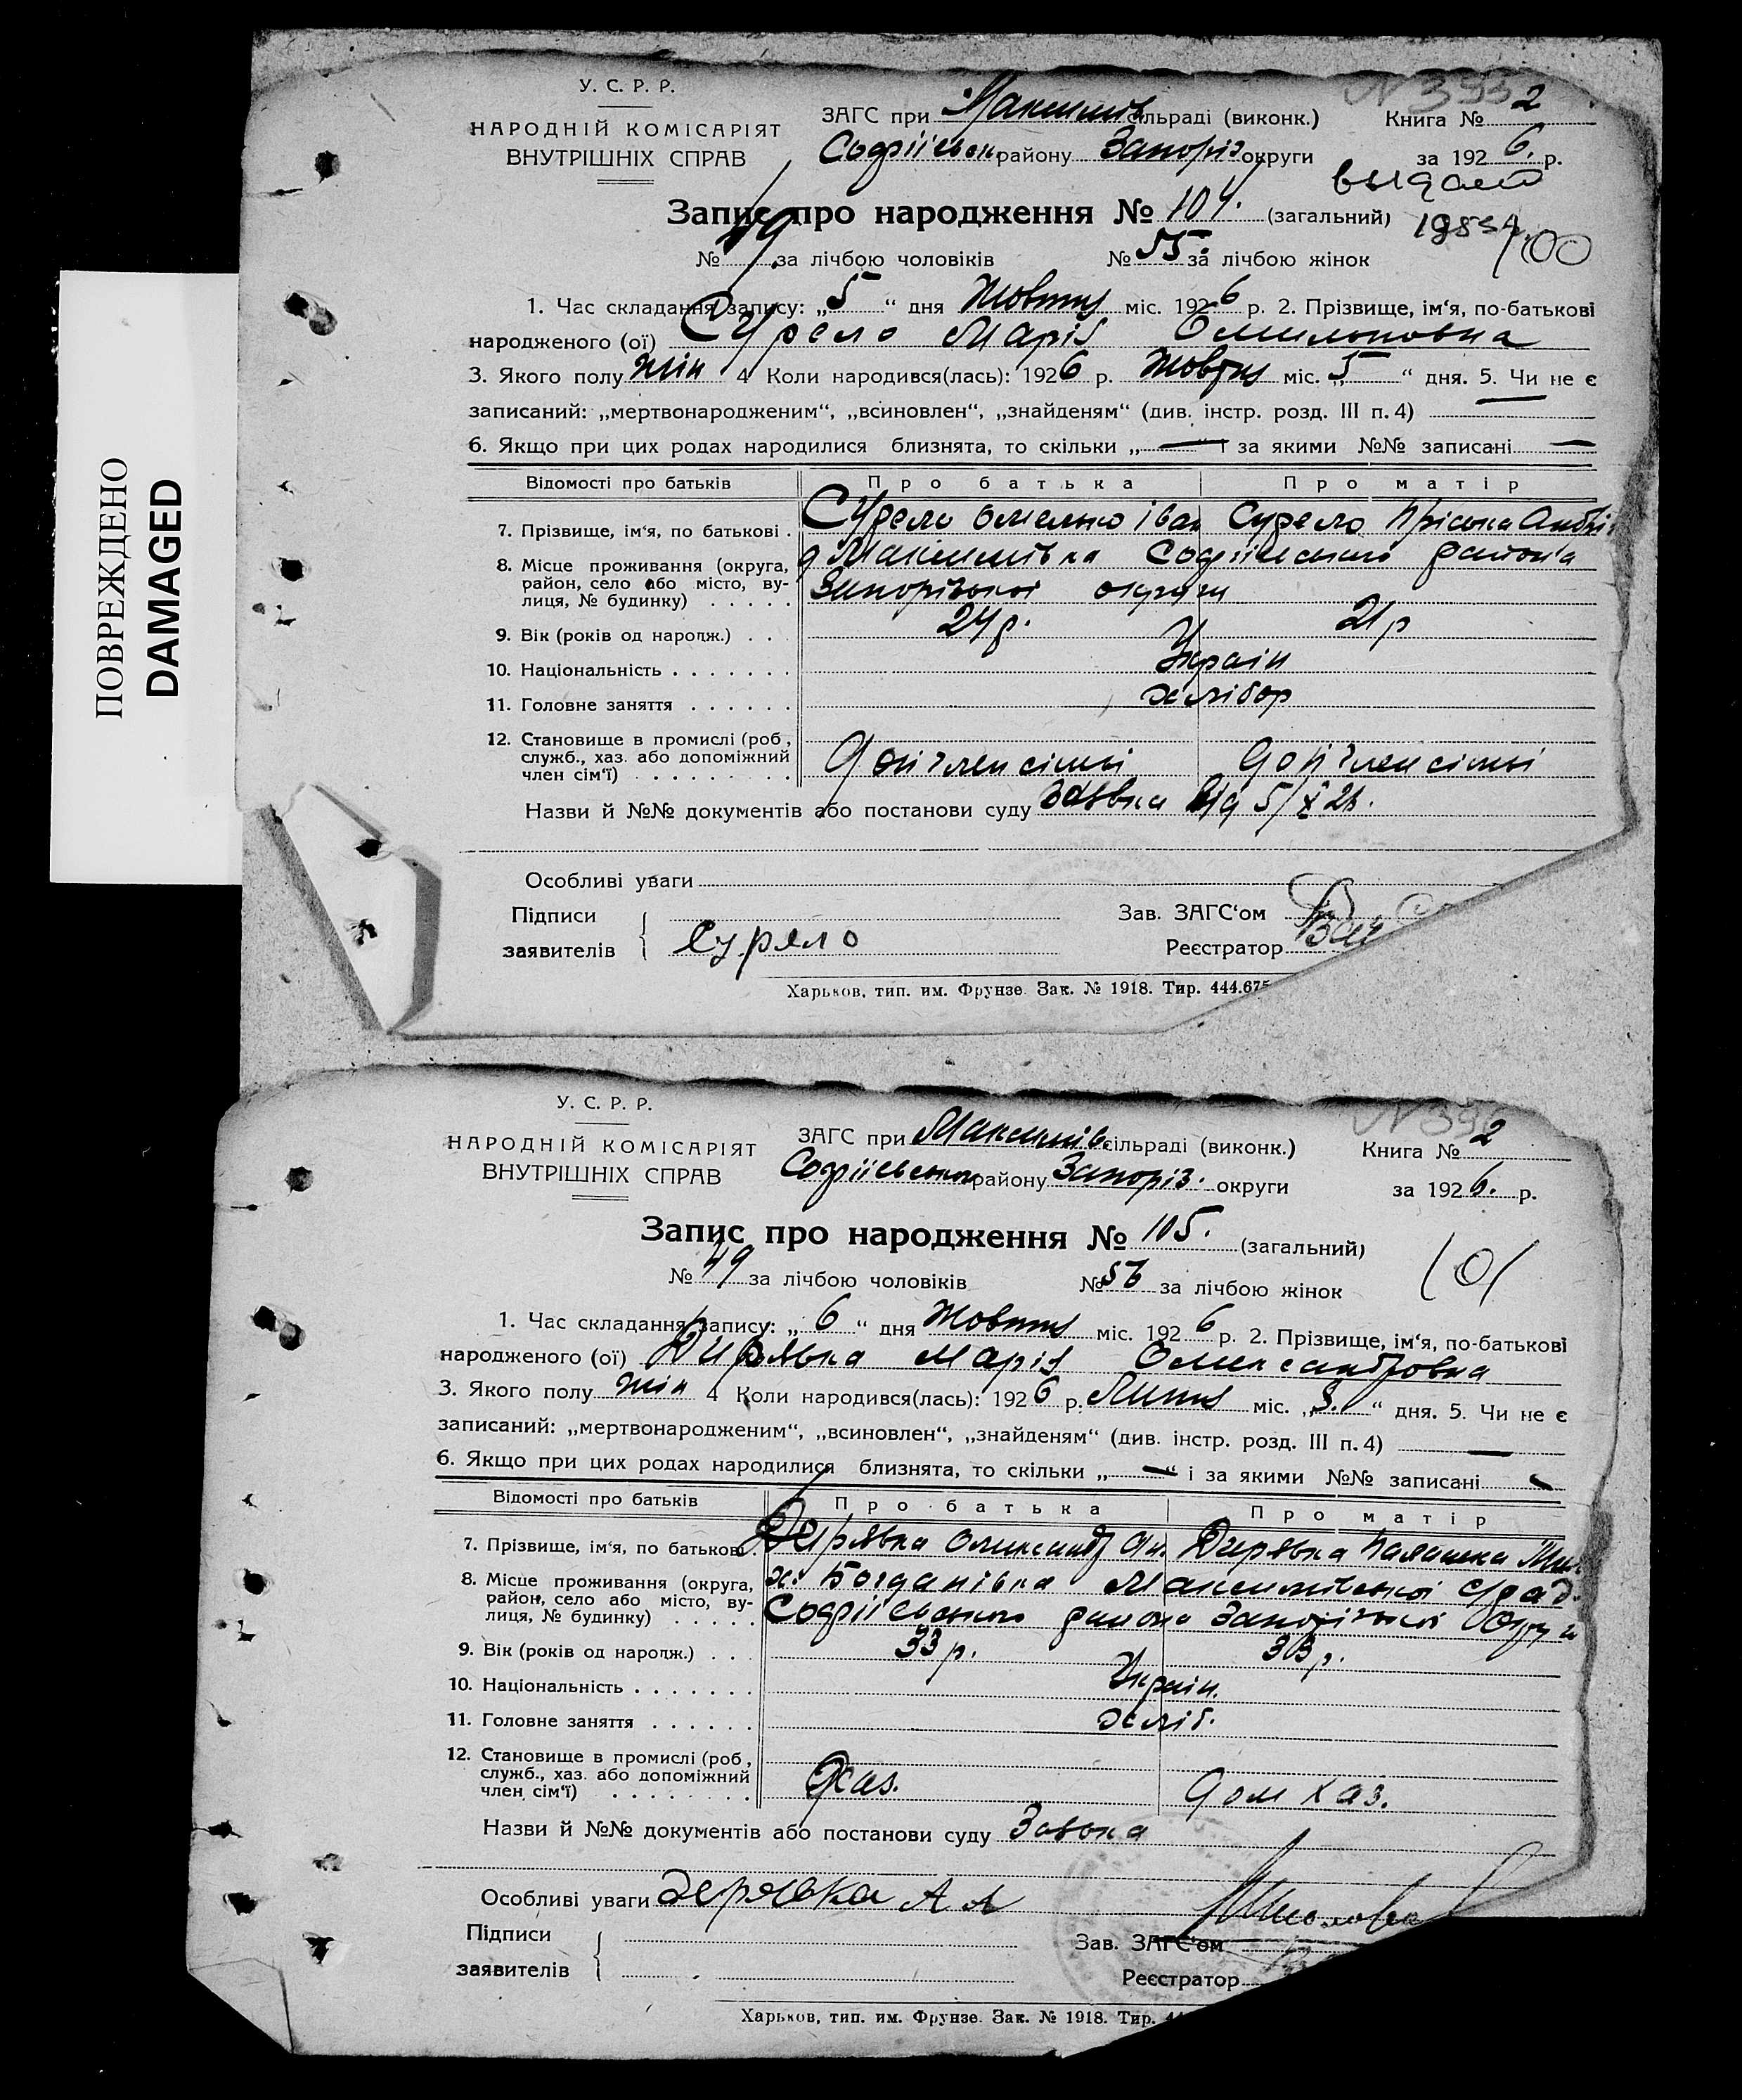 ПОВРЕЖДЕНО
DAMAGED
У. С. Р. Р.
НАРОДНІЙ КОМІСАРІЯТ
ВНУТРІШНІХ СПРАВ
ЗАГС при Максимів сільраді (виконк.)
Софіївськ району Запоріз округи
Книга № 2
за 1926. р.
Запис про народження № 104. (загальний)
100
№ за лічбою чоловіків № 55 за лічбою жінок
1. Час складання запису: „5“ дня Жовтня міс. 1926 р. 2. Прізвище, ім‘я, по-батькові
народженого (ої) Сурело Марія Омельковна
3. Якого полу жін 4 Коли народився(лась): 1926 р. Жовтня міс. „5“ дня. 5. Чи не є
записаний: „мертвонародженим“, „всиновлен“, „знайденям“ (див. інстр. розд. III п. 4)
6. Якщо при цих родах народилися близнята, то скільки „—“ і за якими №№ записані —
Відомості про батьків Про батька Про матір
7. Прізвище, ім‘я, по батькові . Сурело Омелько Іван Сурело Пріська Андрі
8. Місце проживання (округа, район, село або місто, вулиця, № будинку) . . . . . Максимівка Софіївського района
Запорізької округи
9. Вік (років од народж.) . . . 24 р. 21 р
10. Національність . . . . . . . Україн
11. Головне заняття . . . . . . хлібор
12. Становище в промислі (роб, служб., хаз. або допоміжний член сім‘ї) . . . . . . . . . Доп член сімьї Доп член сімьї
Назви й №№ документів або постанови суду Заявка від 5/X 26.
Особливі уваги
Підписи
заявителів
Сурело
Зав. ЗАГС‘ом
Реєстратор
Харьков, тип. им. Фрунзе. Зак. № 1918. Тир. 444.675
У. С. Р. Р.
НАРОДНІЙ КОМІСАРІЯТ
ВНУТРІШНІХ СПРАВ
ЗАГС при Максимів. сільраді (виконк.)
Софіївськ району Запоріз. округи
Книга № 2
за 1926. р.
Запис про народження № 105. (загальний)
101
№ 49 за лічбою чоловіків № 56 за лічбою жінок
1. Час складання запису: „6“ дня Жовтня міс. 1926 р. 2. Прізвище, ім‘я, по-батькові
народженого (ої) Дирявка Марія Олександровна
3. Якого полу жін 4 Коли народився(лась): 1926 р. Липня міс. „3.“ дня. 5. Чи не є
записаний: „мертвонародженим“, „всиновлен“, „знайденям“ (див. інстр. розд. III п. 4) —
6. Якщо при цих родах народилися близнята, то скільки „—“ і за якими №№ записані —
Відомості про батьків Про батька Про матір
7. Прізвище, ім‘я, по батькові . Дирявка Олександ Ан. Дирявка Палашка
8. Місце проживання (округа, район, село або місто, вулиця, № будинку) . . . . . х. Богданівка Максимівської с/рад.
Софіївського района Запорізької Округи
9. Вік (років од народж.) . . . 33 р. 33 р.
10. Національність . . . . . . . Україн.
11. Головне заняття . . . . . . хліб.
12. Становище в промислі (роб, служб., хаз. або допоміжний член сім‘ї) . . . . . . . . Хаз. Дом хаз.
Назви й №№ документів або постанови суду Заявка
Особливі уваги Дерявка А А
Підписи
заявителів
Зав. ЗАГС‘ом
Реєстратор
Харьков, тип. им. Фрунзе. Зак. № 1918. Тир. 44